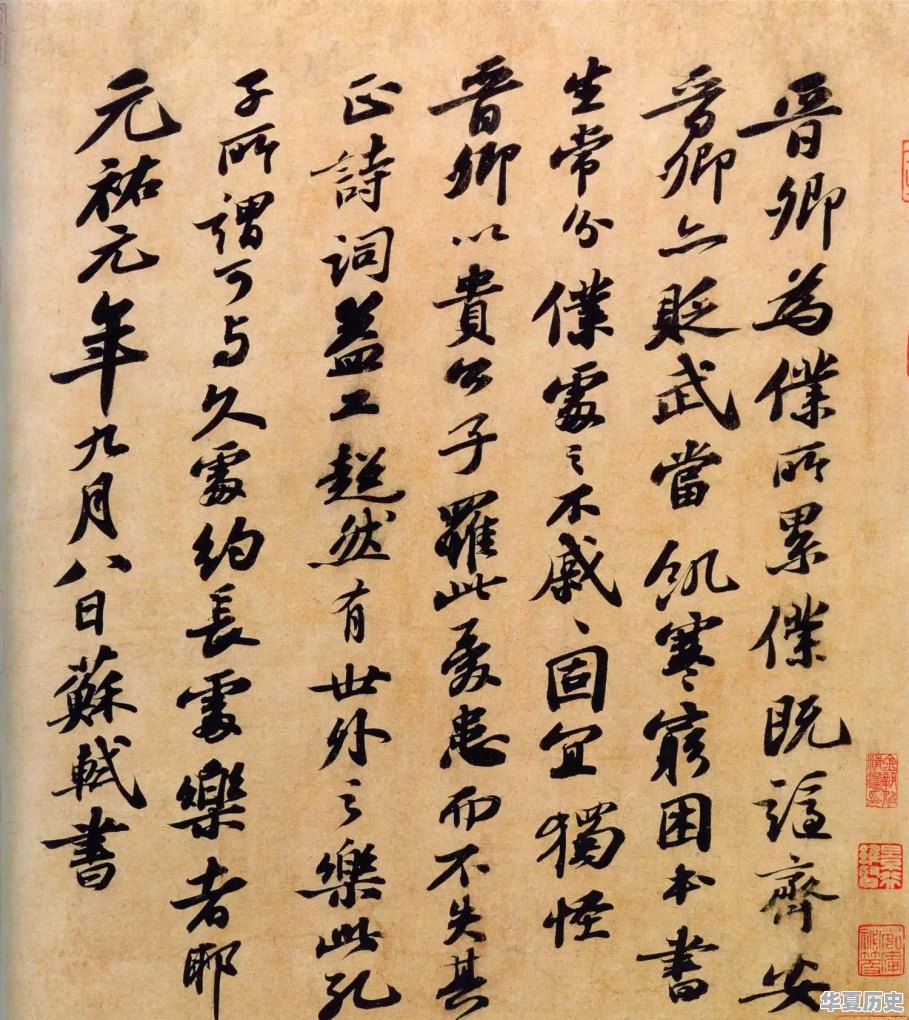 晉卿為僕所累僕既謫齊安
晉卿亦貶武當飢寒窮困本書
生常分僕處之不戚、固宜獨怪
晉卿以貴公子罹此憂患而不失其
正詩詞益工超然有世外之樂此孔
子所謂可与久處約長處樂者耶
元祐元年九月八日蘇軾書
华夏历史